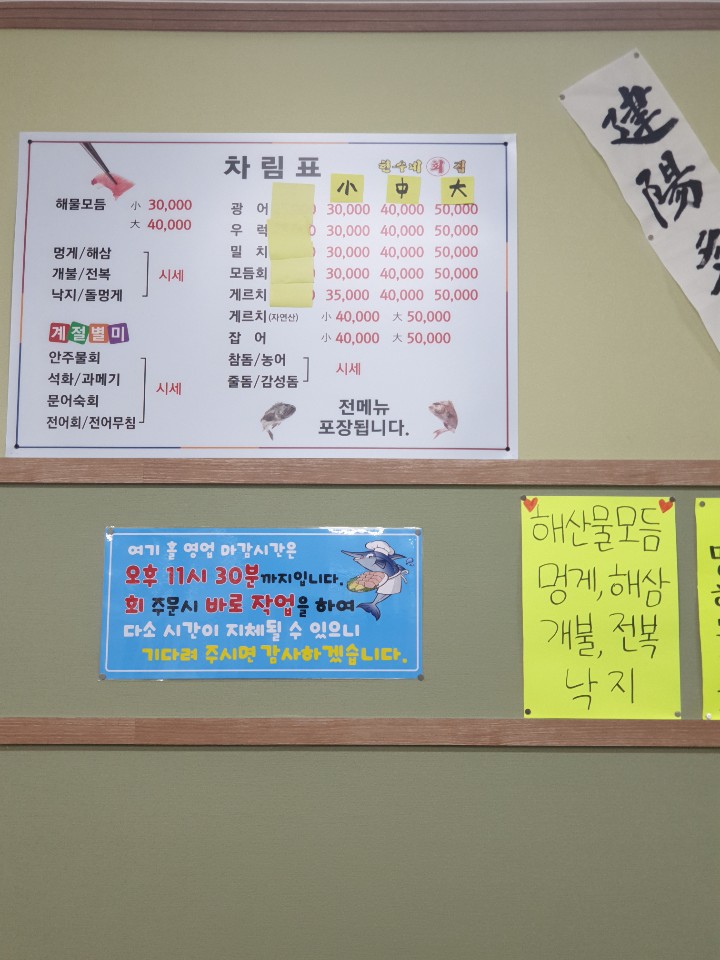 차림표
해물모듬 小 30,000
大 40,000
멍게/해삼
개불/전복
낙지/돌멍게
시세
계절별미
안주물회
석화/과메기
문어숙회
전어회/전어무침
시세
小 中 大
광 어 30,000 40,000 50,000
우 럭 30,000 40,000 50,000
밀 치 30,000 40,000 50,000
모듬회 30,000 40,000 50,000
게르치 35,000 40,000 50,000
게르치(자연산) 小 40,000 大 50,000
잡 어 小 40,000 大 50,000
참돔/농어
줄돔/감성돔
시세
전메뉴
포장됩니다.
建陽
여기 홀 영업 마감시간은
오후 11시 30분까지입니다.
회 주문시 바로 작업을 하여
다소 시간이 지체될 수 있으니
기다려 주시면 감사하겠습니다.
해산물모듬
멍게, 해삼
개불, 전복
낙지